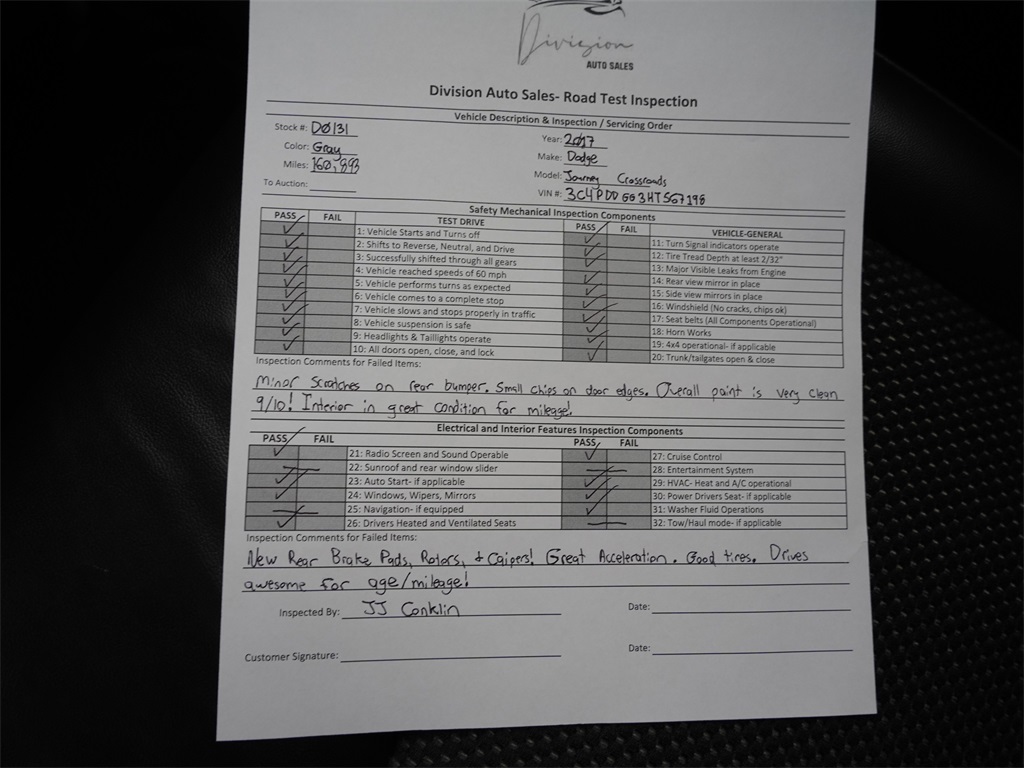 Division
AUTO SALES
Division Auto Sales- Road Test Inspection
Vehicle Description & Inspection / Servicing Order
Stock #: D0131 Year: 2017
Color: Gray Make: Dodge
Miles: 160,893 Model: Journey Crossroads
To Auction: VIN #: 3C4PDDGG3HT567198
Safety Mechanical Inspection Components
PASS FAIL TEST DRIVE PASS FAIL VEHICLE-GENERAL
1: Vehicle Starts and Turns off 11: Turn Signal indicators operate
2: Shifts to Reverse, Neutral, and Drive 12: Tire Tread Depth at least 2/32"
3: Successfully shifted through all gears 13: Major Visible Leaks from Engine
4: Vehicle reached speeds of 60 mph 14: Rear view mirror in place
5: Vehicle performs turns as expected 15: Side view mirrors in place
6: Vehicle comes to a complete stop 16: Windshield (No cracks, chips ok)
7: Vehicle slows and stops properly in traffic 17: Seat belts (All Components Operational)
8: Vehicle suspension is safe 18: Horn Works
9: Headlights & Taillights operate 19: 4x4 operational- if applicable
10: All doors open, close, and lock 20: Trunk/tailgates open & close
Inspection Comments for Failed Items:
Minor Scratches on rear bumper. Small chips on door edges. Overall paint is very clean
9/10! Interior in great condition for mileage!
Electrical and Interior Features Inspection Components
PASS FAIL PASS FAIL
21: Radio Screen and Sound Operable 27: Cruise Control
22: Sunroof and rear window slider 28: Entertainment System
23: Auto Start- if applicable 29: HVAC- Heat and A/C operational
24: Windows, Wipers, Mirrors 30: Power Drivers Seat- if applicable
25: Navigation- if equipped 31: Washer Fluid Operations
26: Drivers Heated and Ventilated Seats 32: Tow/Haul mode- if applicable
Inspection Comments for Failed Items:
New Rear Brake Pads, Rotors, & Calpers! Great Acceleration. Good tires. Drives
awesome for age/mileage!
Inspected By: JJ Conklin Date:
Customer Signature: Date: